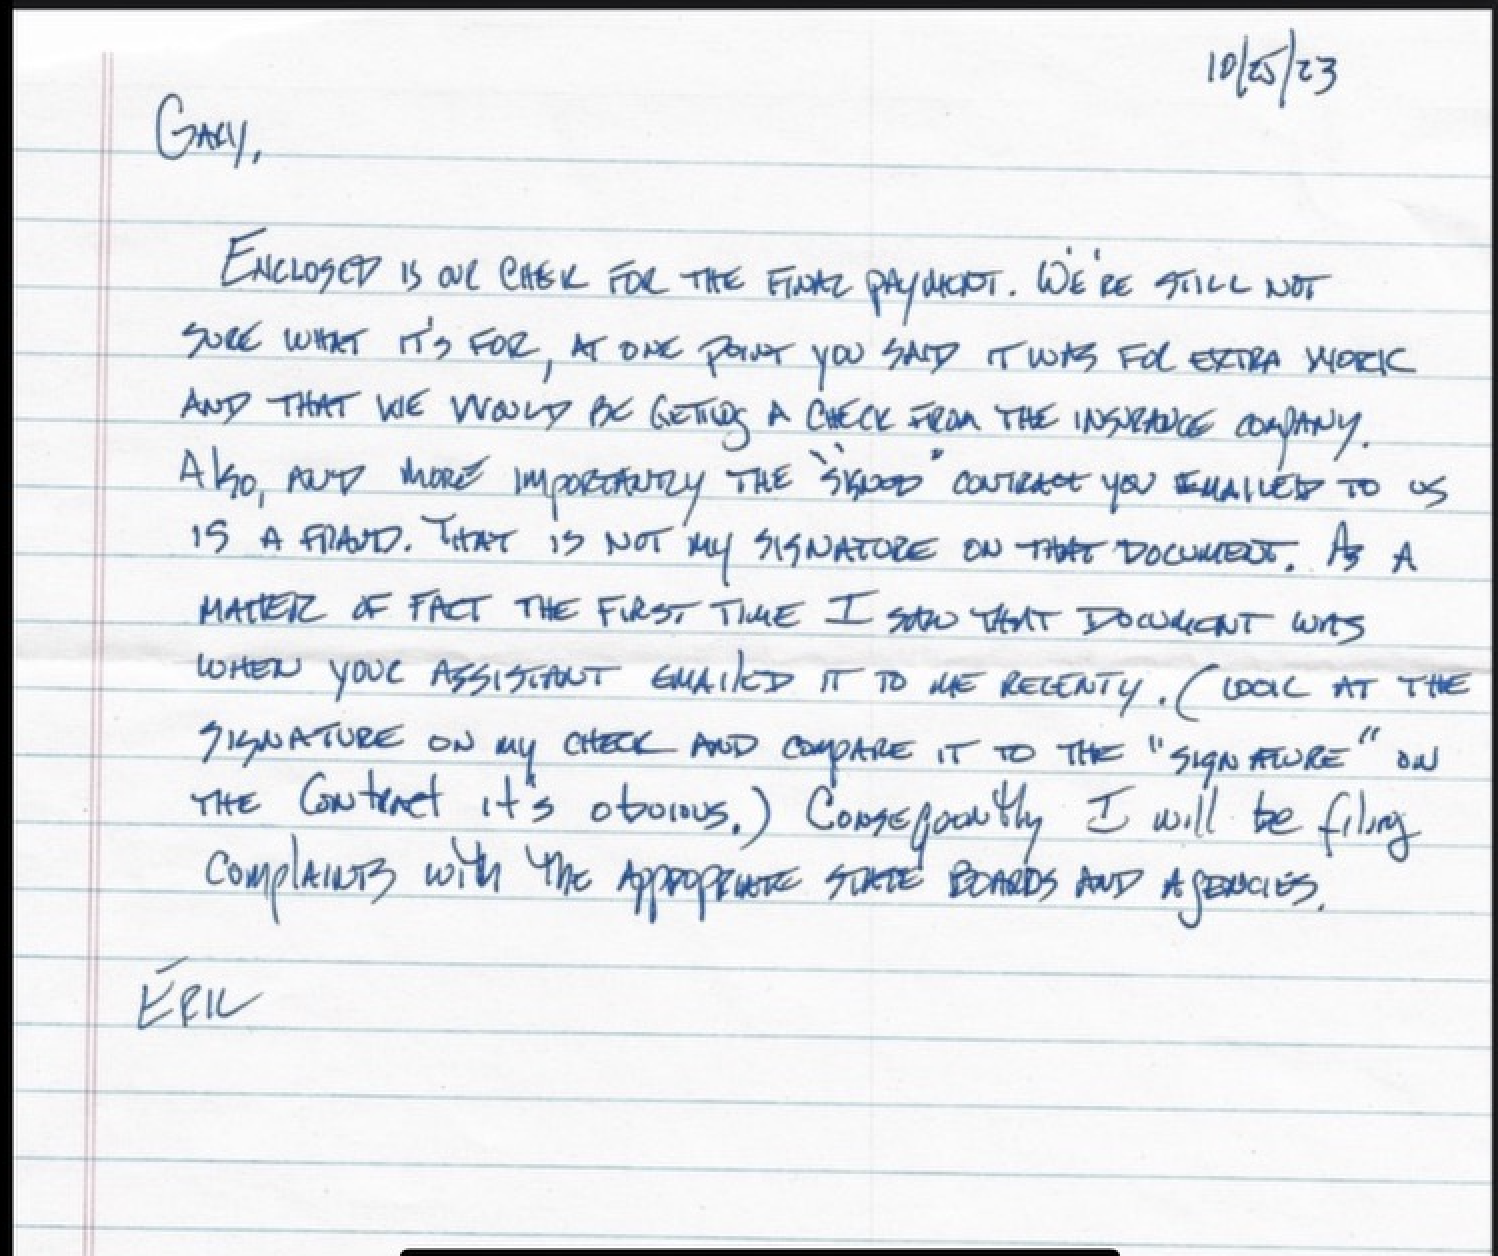 10/25/23
Gary,
Enclosed is our chek for the final payment. We're still not
sure what it's for, at one point you said it was for extra work
and that we would be getting a check from the insurance company.
Also, and more importantly the "signed" contract you emailed to us
is a fraud. That is not my signature on that document. As a
matter of fact the first time I saw that document was
when your assistant emailed it to me recenty. (Look at the
signature on my check and compare it to the "signature" on
the contract it's obvious.) Consequently I will be filing
complaints with the appropriate state boards and agencies.
Eric